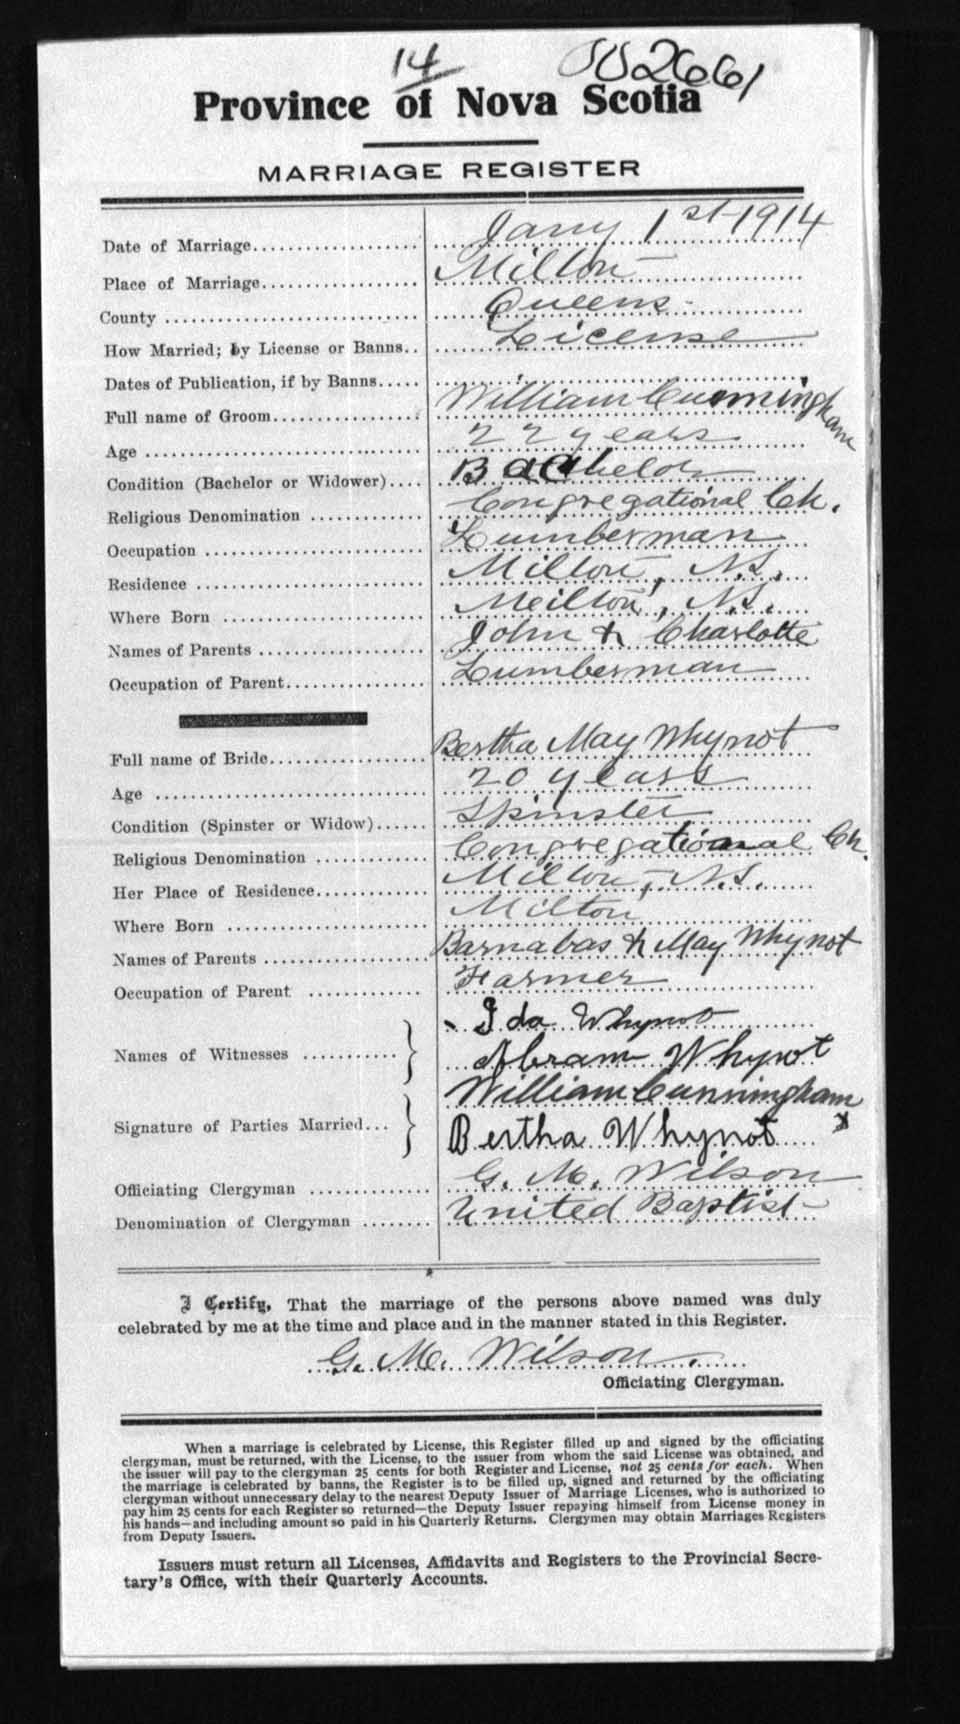 14
Province of Nova Scotia
MARRIAGE REGISTER
Date of Marriage.................... Jany 1st 1914
Place of Marriage.................. Milton
County ............................. Queens
How Married; by License or Banns.. License
Dates of Publication, if by Banns.....
Full name of Groom................. William Cunningham
Age ................................ 22 years
Condition (Bachelor or Widower).... Bachelor
Religious Denomination ............. Congregational Ch.
Occupation ......................... Lumberman
Residence .......................... Milton, N.S.
Where Born ....................... Milton, N.S.
Names of Parents ................... John & Charlotte
Occupation of Parent................ Lumberman
Full name of Bride.................. Bertha May Whynot
Age ............................... 20 years
Condition (Spinster or Widow)...... Spinster
Religious Denomination ............ Congregational Ch.
Her Place of Residence............. Milton, N.S.
Where Born ....................... Milton
Names of Parents ................... Barnabas & May Whynot
Occupation of Parent ............. Farmer
Ida Whynot
Names of Witnesses ........... Abram Whynot
William Cunningham
Signature of Parties Married... Bertha Whynot x
Officiating Clergyman ............. G. M. Wilson
Denomination of Clergyman ........ United Baptist
I Certify, That the marriage of the persons above named was duly
celebrated by me at the time and place and in the manner stated in this Register.
G. M. Wilson.
Officiating Clergyman.
When a marriage is celebrated by License, this Register filled up and signed by the officiating
clergyman, must be returned, with the License, to the issuer from whom the said License was obtained, and
the issuer will pay to the clergyman 25 cents for both Register and License, not 25 cents for each. When
the marriage is celebrated by banns, the Register is to be filled up, signed and returned by the officiating
clergyman without unnecessary delay to the nearest Deputy Issuer of Marriage Licenses, who is authorized to
pay him 25 cents for each Register so returned—the Deputy Issuer repaying himself from License money in
his hands—and including amount so paid in his Quarterly Returns. Clergymen may obtain Marriages Registers
from Deputy Issuers.
Issuers must return all Licenses, Affidavits and Registers to the Provincial Secre-
tary's Office, with their Quarterly Accounts.